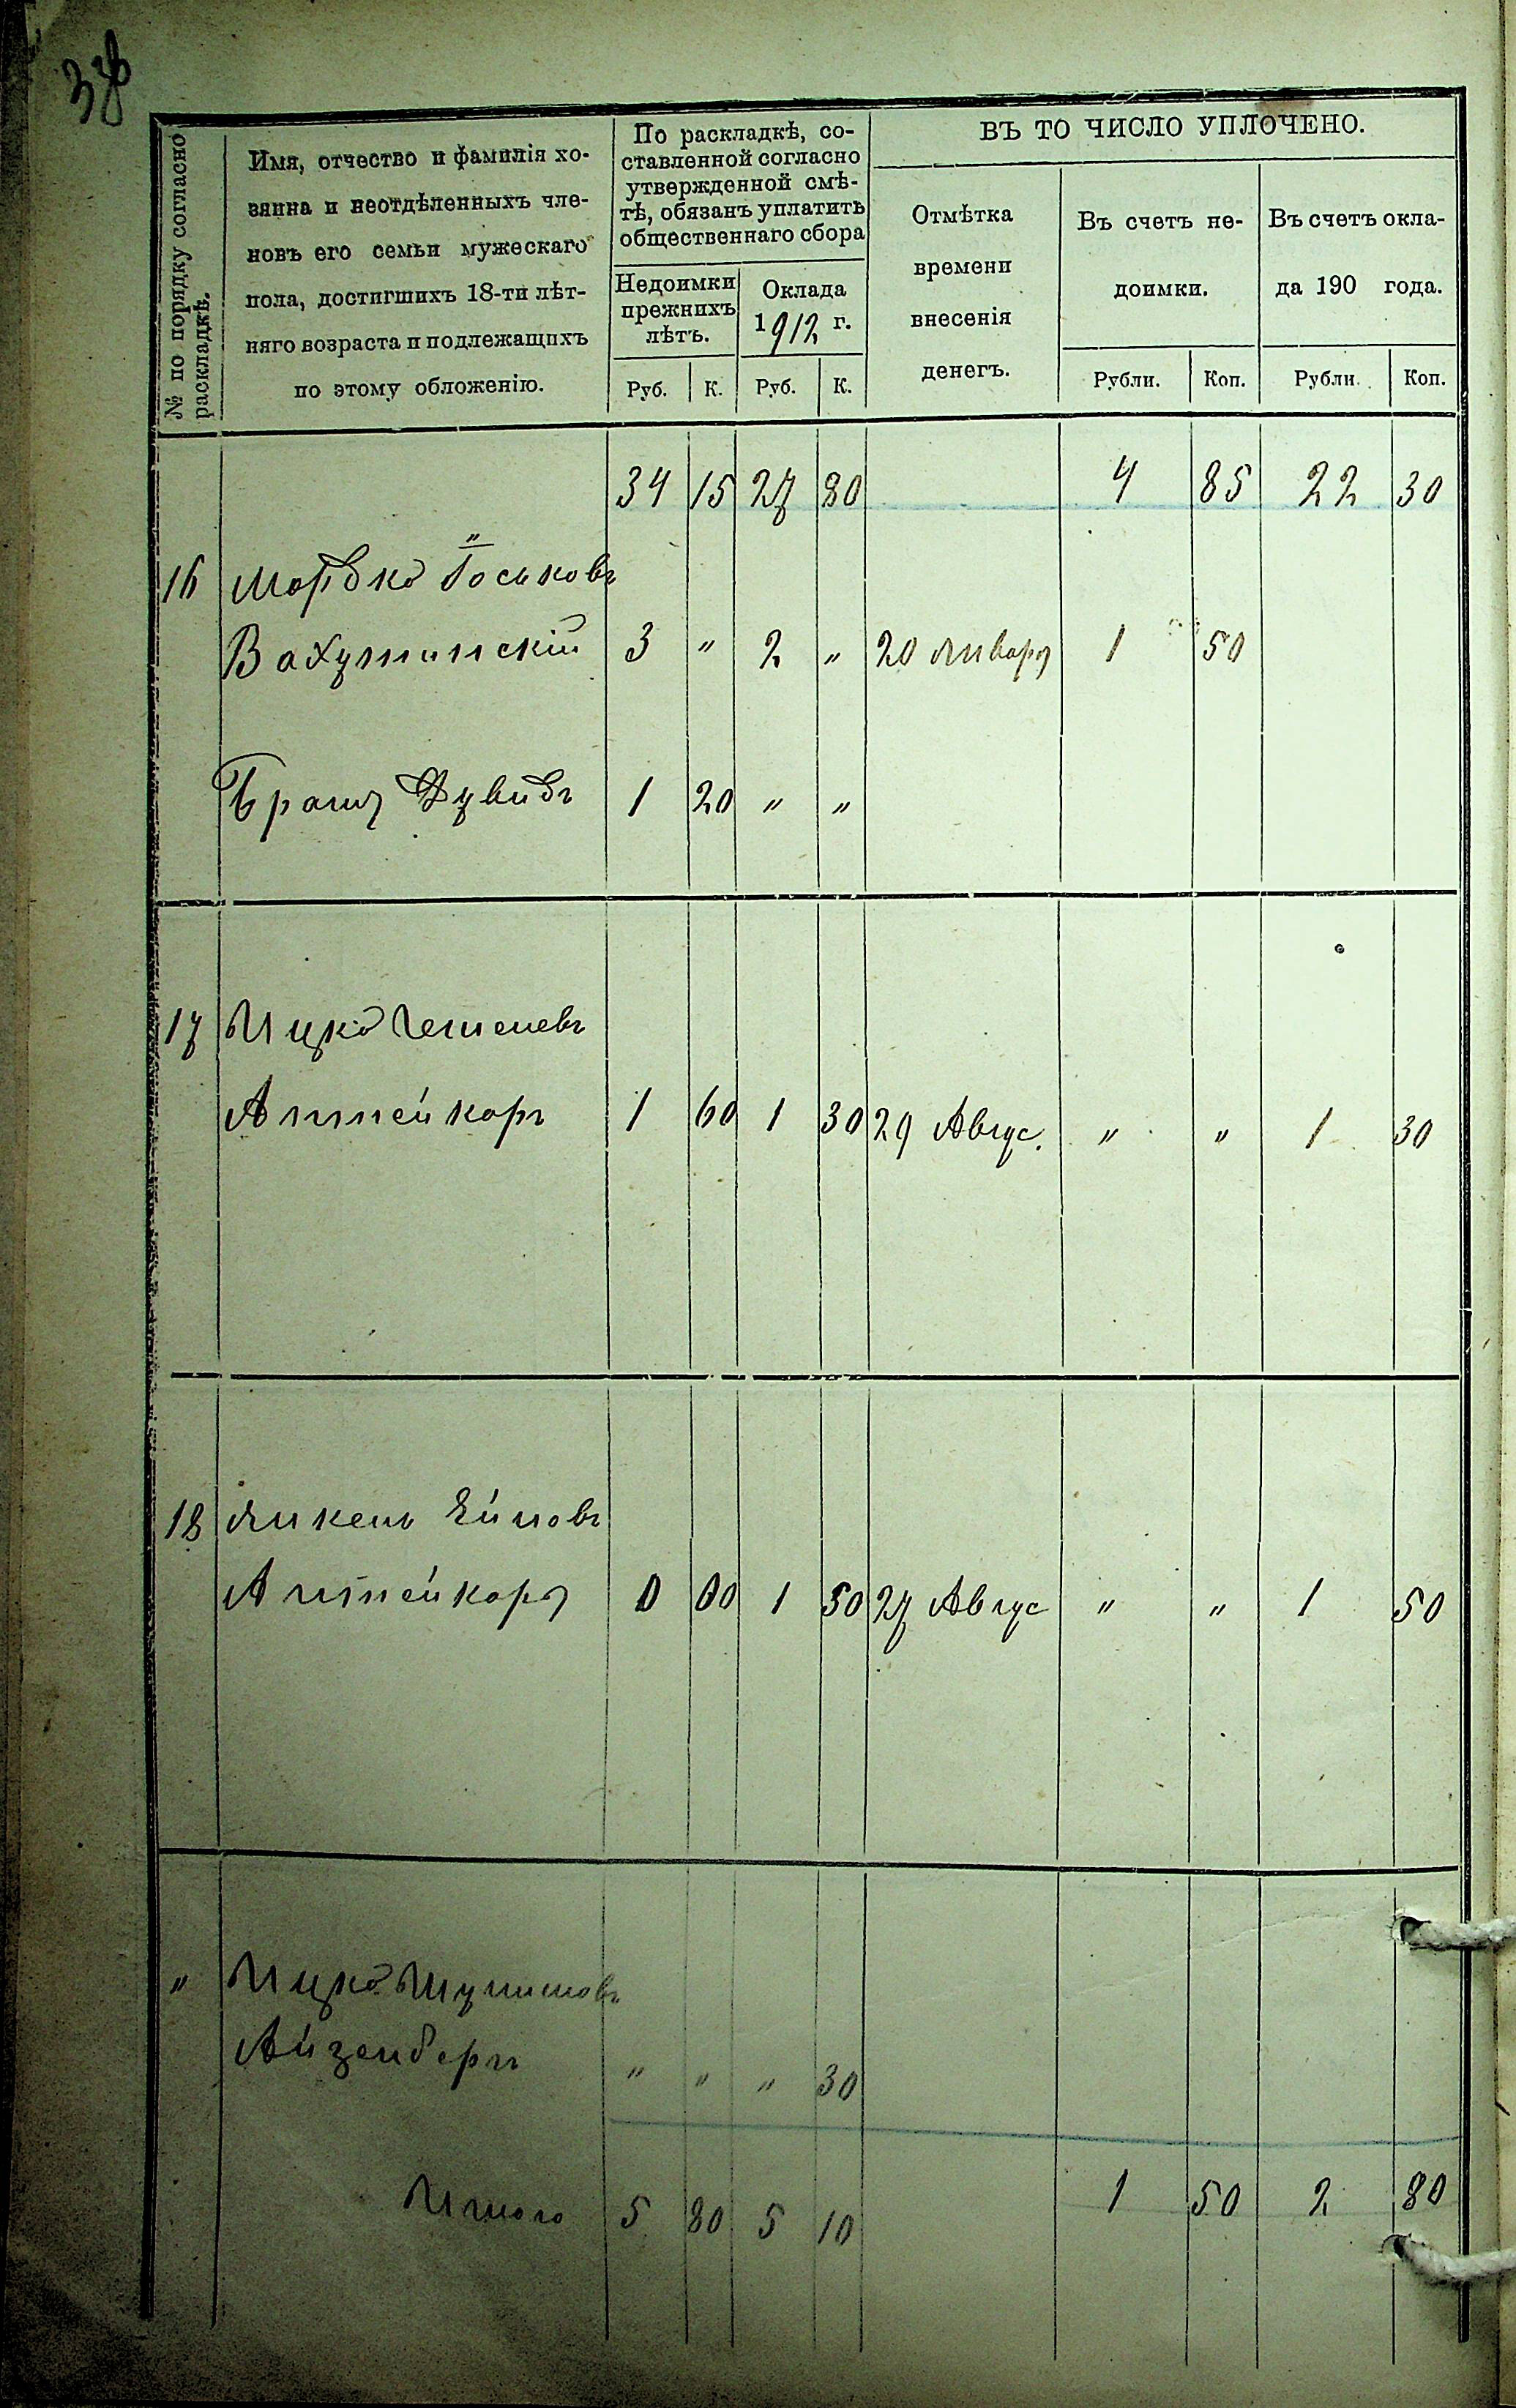 38
№ по порядку согласно
раскладкѣ.
Имя, отчество и фамилія хо-
зяина и неотдѣленныхъ чле-
новъ его семьи мужескаго
пола, достигшихъ 18-ти лѣт-
няго возраста и подлежащихъ
по этому обложенію.
По раскладкѣ, со-
ставленной согласно
утвержденной смѣ-
тѣ, обязанъ уплатить
общественнаго сбора
Недоимки
прежнихъ
лѣтъ.
Оклада
1912 г.
Руб. К. Руб. К.
ВЪ ТО ЧИСЛО УПЛОЧЕНО.
Отмѣтка
времени
внесенія
денегъ.
Въ счетъ не-
доимки.
Рубли. Коп.
Въ счетъ окла-
да 190 года.
Рубли. Коп.
34 15 27 80 4 85 22 30
16 Мордко Іоськовъ
Вахутинскій 3 " 2 " 20 Января 1 50
Братъ Дувидъ 1 20 " "
17 Ицко
Аптейкаръ 1 60 1 30 29 Авгус. " " 1 30
18 Янкель
Аптейкаръ 0 00 1 50 27 Авгус " " 1 50
" Ицко
Айзенбергъ " " " 30
Итого 5 80 5 10 1 50 2 80